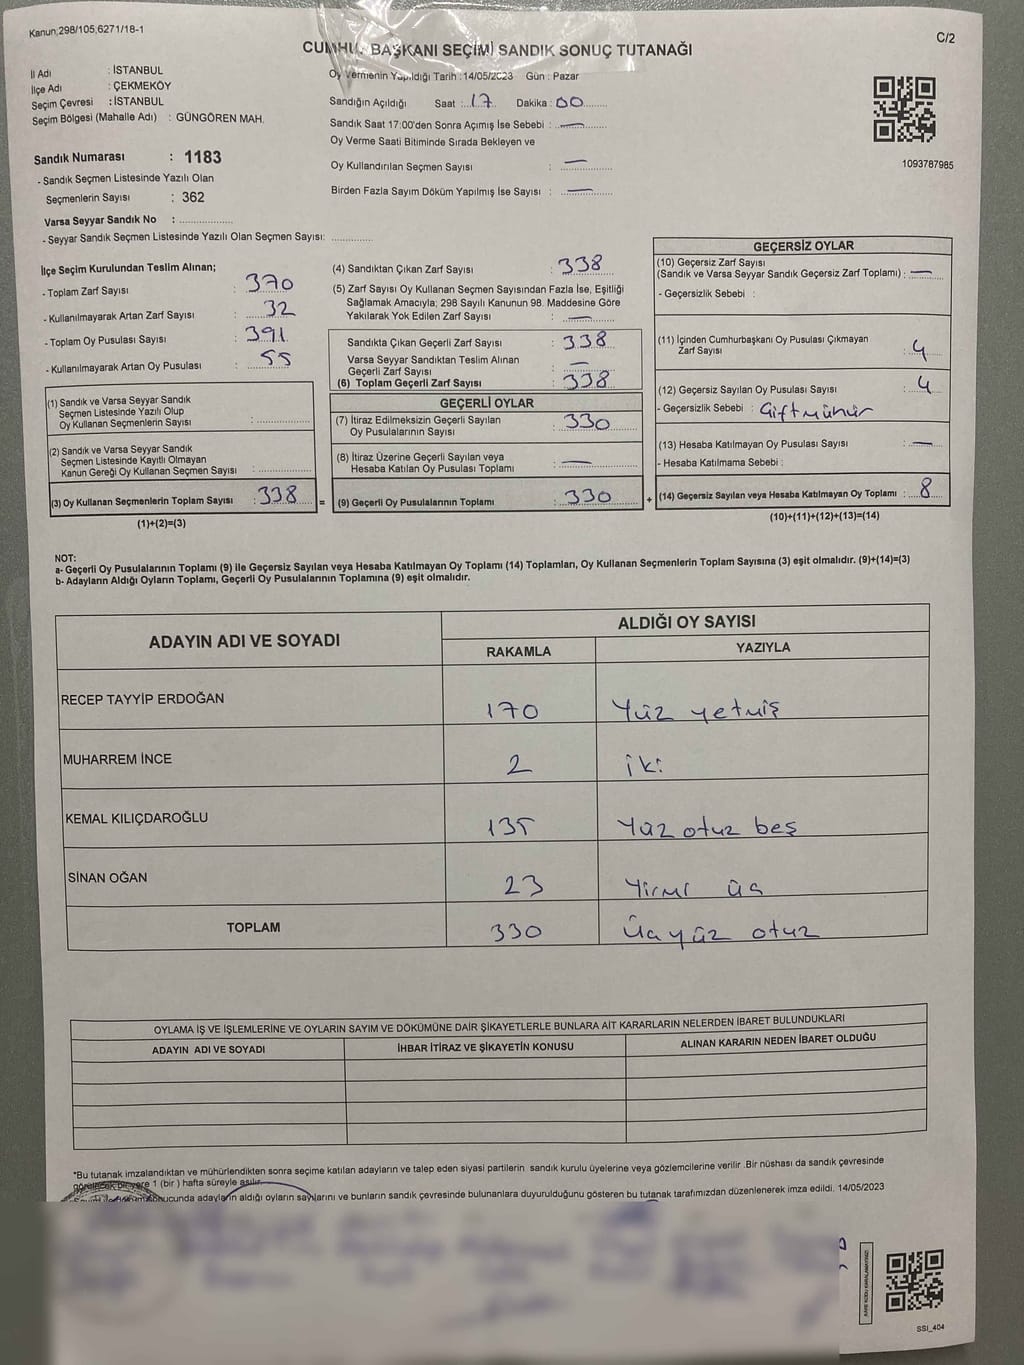 Kanun;298/105,6271/18-1
C/2
CUMHU BAŞKANI SEÇİMİ SANDIK SONUÇ TUTANAĞI
İl Adı : İSTANBUL
İlçe Adı : ÇEKMEKÖY
Seçim Çevresi : İSTANBUL
Seçim Bölgesi (Mahalle Adı) : GÜNGÖREN MAH.
Sandık Numarası : 1183
- Sandık Seçmen Listesinde Yazılı Olan
Seçmenlerin Sayısı : 362
Varsa Seyyar Sandık No : ....................
- Seyyar Sandık Seçmen Listesinde Yazılı Olan Seçmen Sayısı: ...............
Oy Vermenin Yapıldığı Tarih : 14/05/2023 Gün : Pazar
Sandığın Açıldığı Saat : 17 Dakika : 00
Sandık Saat 17:00'den Sonra Açımış İse Sebebi : —
Oy Verme Saati Bitiminde Sırada Bekleyen ve
Oy Kullandırılan Seçmen Sayısı : —
Birden Fazla Sayım Döküm Yapılmış İse Sayısı : —
1093787985
İlçe Seçim Kurulundan Teslim Alınan;
- Toplam Zarf Sayısı : 370
- Kullanılmayarak Artan Zarf Sayısı : 32
- Toplam Oy Pusulası Sayısı : 391
- Kullanılmayarak Artan Oy Pusulası : 55
(1) Sandık ve Varsa Seyyar Sandık
Seçmen Listesinde Yazılı Olup
Oy Kullanan Seçmenlerin Sayısı : ...............
(2) Sandık ve Varsa Seyyar Sandık
Seçmen Listesinde Kayıtlı Olmayan
Kanun Gereği Oy Kullanan Seçmen Sayısı : ...............
(3) Oy Kullanan Seçmenlerin Toplam Sayısı : 338 =
(1)+(2)=(3)
(4) Sandıktan Çıkan Zarf Sayısı : 338
(5) Zarf Sayısı Oy Kullanan Seçmen Sayısından Fazla İse, Eşitliği
Sağlamak Amacıyla; 298 Sayılı Kanunun 98. Maddesine Göre
Yakılarak Yok Edilen Zarf Sayısı : —
Sandıkta Çıkan Geçerli Zarf Sayısı : 338
Varsa Seyyar Sandıktan Teslim Alınan
Geçerli Zarf Sayısı : —
(6) Toplam Geçerli Zarf Sayısı : 338
GEÇERLİ OYLAR
(7) İtiraz Edilmeksizin Geçerli Sayılan
Oy Pusulalarının Sayısı : 330
(8) İtiraz Üzerine Geçerli Sayılan veya
Hesaba Katılan Oy Pusulası Toplamı : —
(9) Geçerli Oy Pusulalarının Toplamı : 330 +
GEÇERSİZ OYLAR
(10) Geçersiz Zarf Sayısı
(Sandık ve Varsa Seyyar Sandık Geçersiz Zarf Toplamı) : —
- Geçersizlik Sebebi :
(11) İçinden Cumhurbaşkanı Oy Pusulası Çıkmayan
Zarf Sayısı : 4
(12) Geçersiz Sayılan Oy Pusulası Sayısı : 4
- Geçersizlik Sebebi : Çift mühür
(13) Hesaba Katılmayan Oy Pusulası Sayısı : —
- Hesaba Katılmama Sebebi :
(14) Geçersiz Sayılan veya Hesaba Katılmayan Oy Toplamı : 8
(10)+(11)+(12)+(13)=(14)
NOT:
a- Geçerli Oy Pusulalarının Toplamı (9) ile Geçersiz Sayılan veya Hesaba Katılmayan Oy Toplamı (14) Toplamları, Oy Kullanan Seçmenlerin Toplam Sayısına (3) eşit olmalıdır. (9)+(14)=(3)
b- Adayların Aldığı Oyların Toplamı, Geçerli Oy Pusulalarının Toplamına (9) eşit olmalıdır.
ADAYIN ADI VE SOYADI ALDIĞI OY SAYISI
RAKAMLA YAZIYLA
RECEP TAYYİP ERDOĞAN 170 Yüz yetmiş
MUHARREM İNCE 2 iki
KEMAL KILIÇDAROĞLU 135 Yüz otuz beş
SİNAN OĞAN 23 Yirmi üç
TOPLAM 330 Üçyüz otuz
OYLAMA İŞ VE İŞLEMLERİNE VE OYLARIN SAYIM VE DÖKÜMÜNE DAİR ŞİKAYETLERLE BUNLARA AİT KARARLARIN NELERDEN İBARET BULUNDUKLARI
ADAYIN ADI VE SOYADI İHBAR İTİRAZ VE ŞİKAYETİN KONUSU ALINAN KARARIN NEDEN İBARET OLDUĞU
*Bu tutanak imzalandıktan ve mühürlendikten sonra seçime katılan adayların ve talep eden siyasi partilerin sandık kurulu üyelerine veya gözlemcilerine verilir .Bir nüshası da sandık çevresinde
görülecek bir yere 1 (bir ) hafta süreyle asılır.
sonucunda adayların aldığı oyların sayılarını ve bunların sandık çevresinde bulunanlara duyurulduğunu gösteren bu tutanak tarafımızdan düzenlenerek imza edildi. 14/05/2023
SSI_404